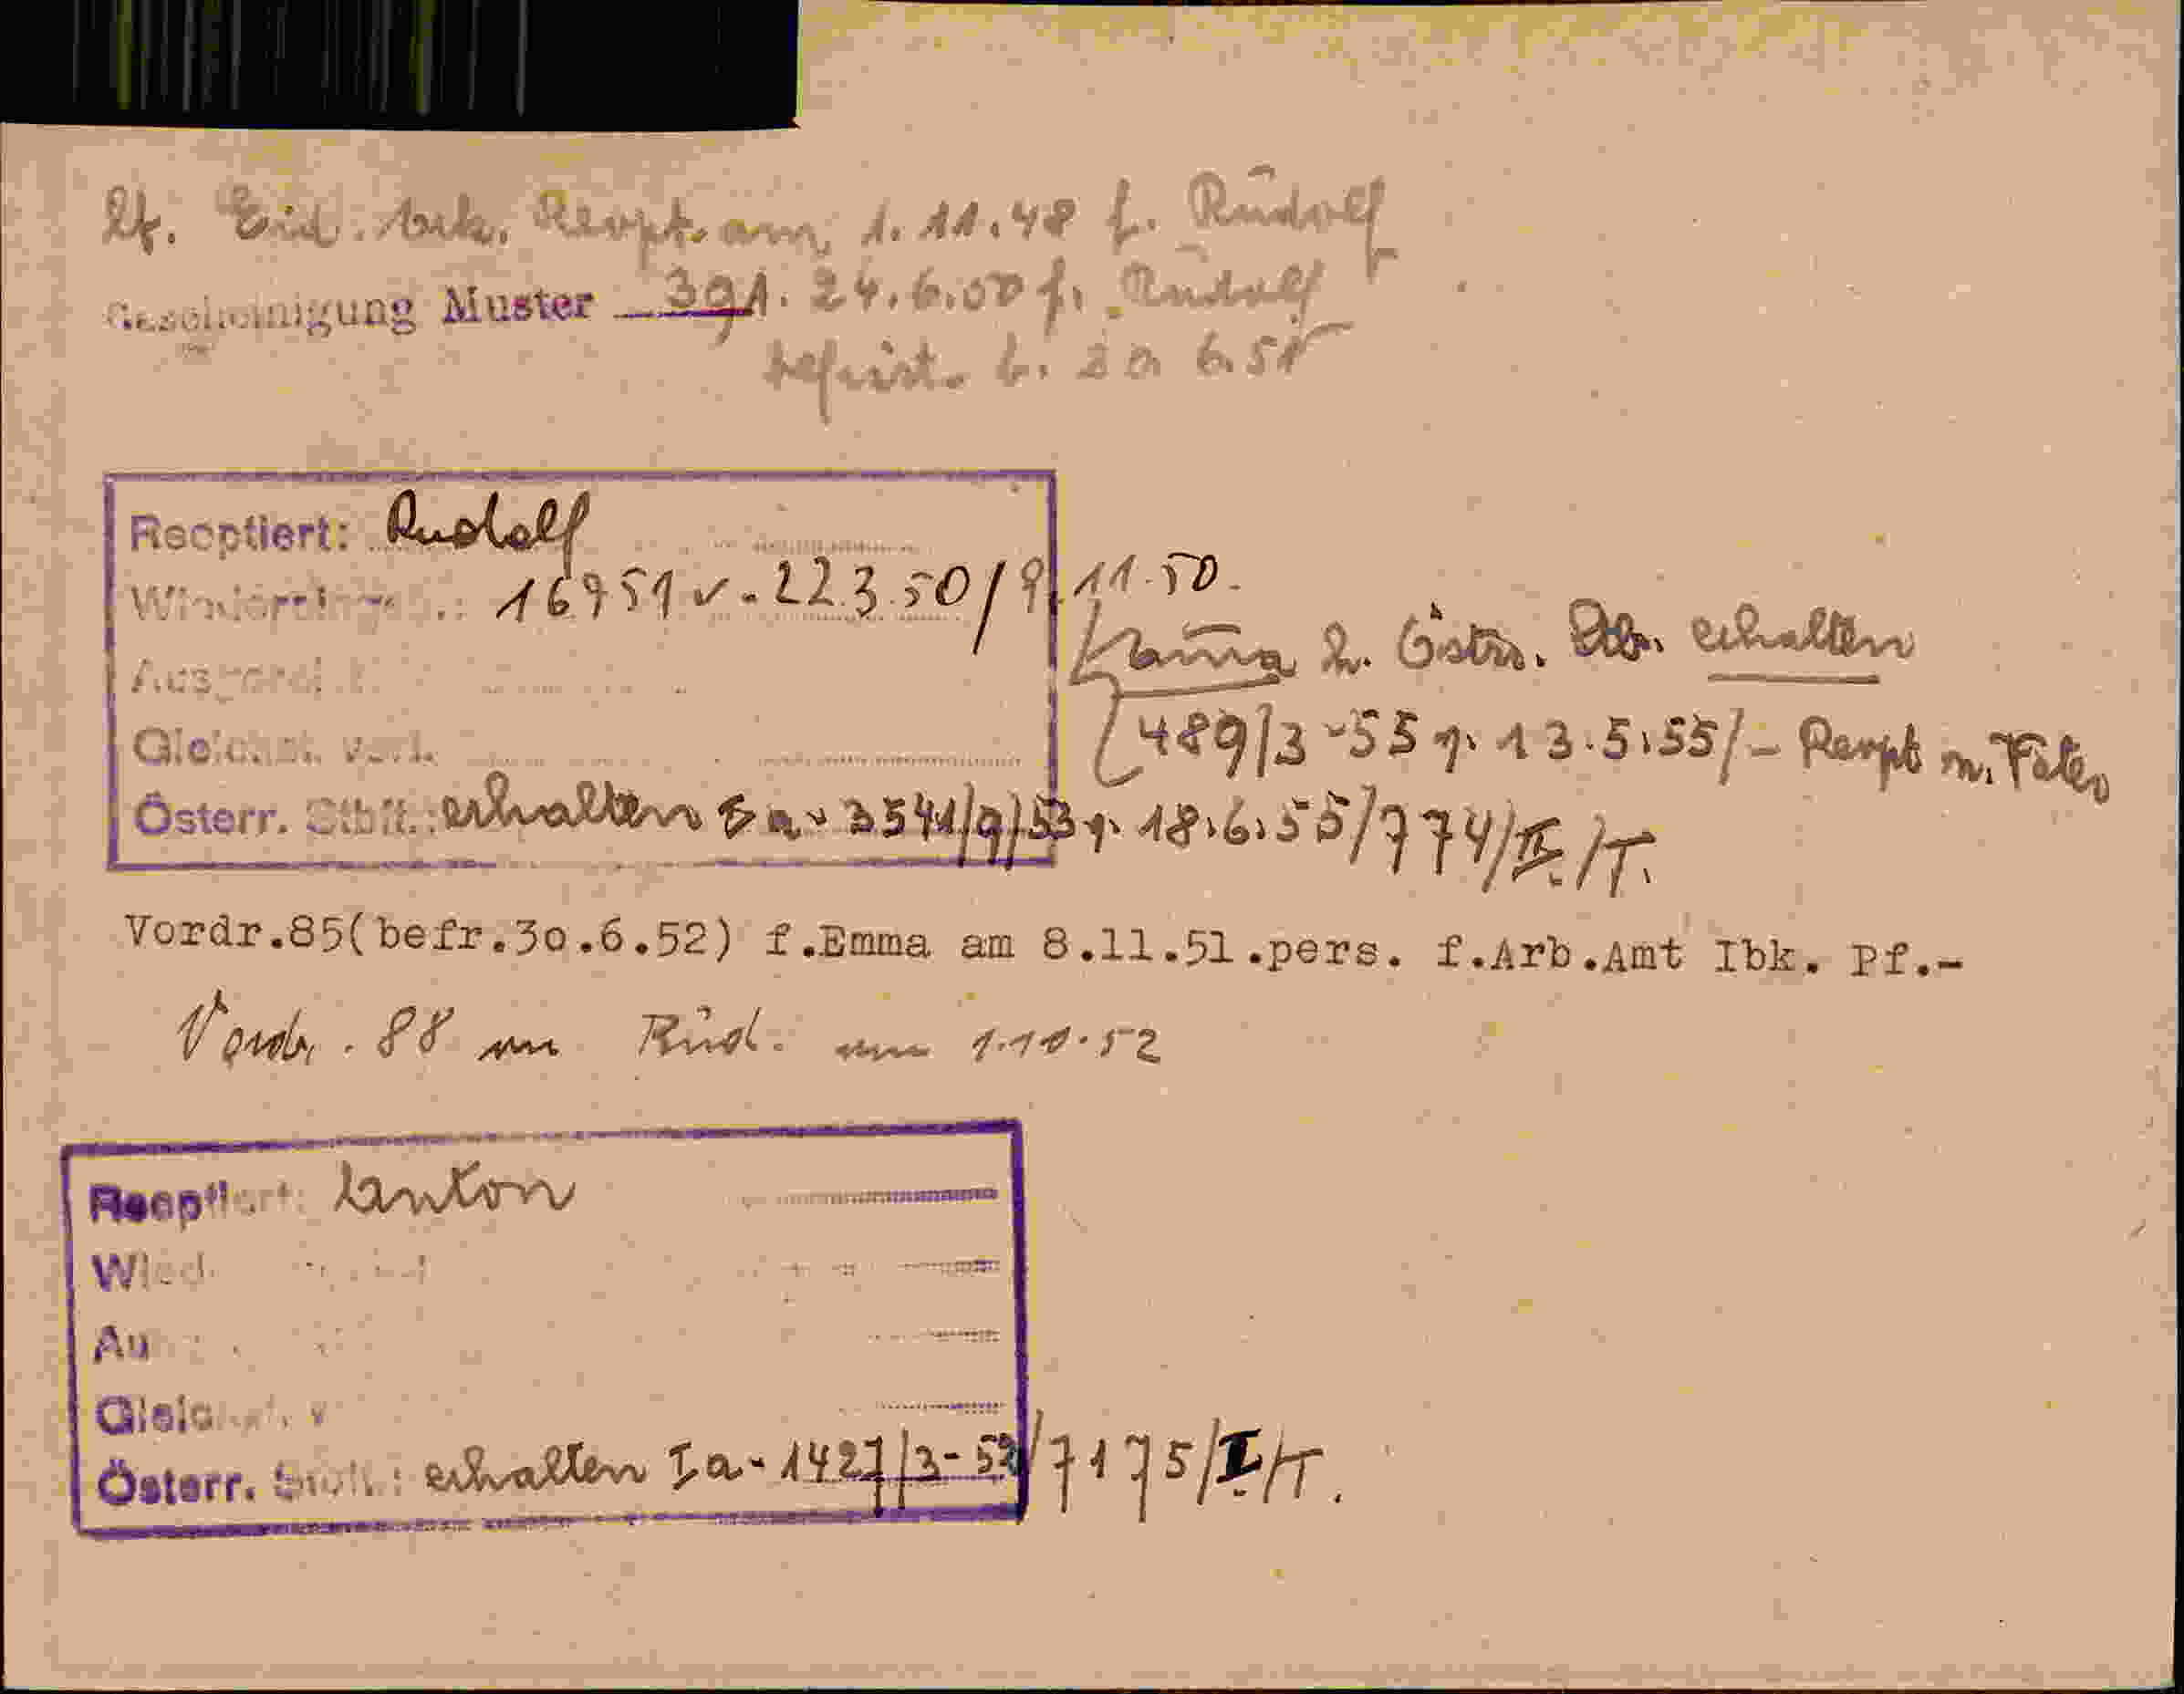 Lt. Eid. Erk. Reopt. am 1.11.48 f. Rudolf
Bescheinigung Muster 391. 24.6.50 f. Rudolf
befrist. b. 30. 6.51
Reoptiert: Rudolf
16951 v. 22.3.50/9.11.50.
Österr. Stbft.: erhalten Ia-3541/9/53 v. 18.6.55/774/II/T.
2. Östr. Stb. erhalten
489/3-55 v. 13.5.55/- Reopt m. Vater
Vordr.85(befr.30.6.52) f.Emma am 8.11.51.pers. f.Arb.Amt Ibk. Pf.-
Vordr. 88 an Rud. am 1.10.52
Reoptiert: Anton
Wied
Au
Gleich
Österr. Stbft.: erhalten Ia-1427/3-52/7175/I/T.